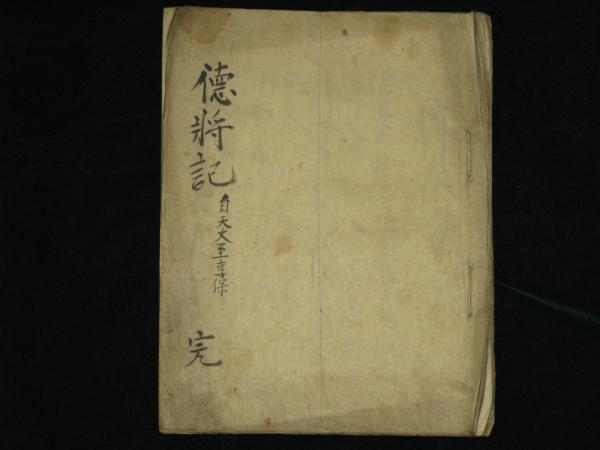 德將記
自天文至享保
完